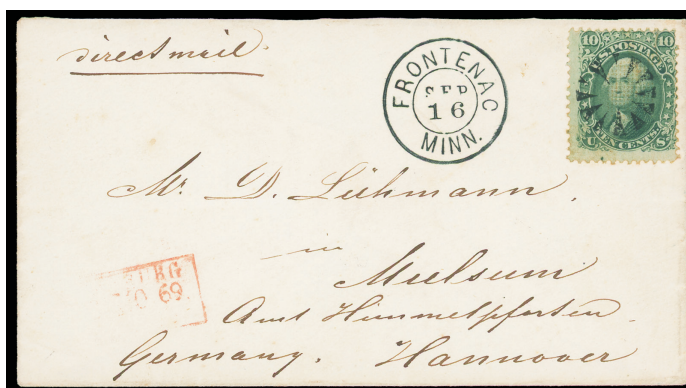 direct mail.
FRONTENAC
SEP
16
MINN.
10 U.S. POSTAGE 10
U TEN CENTS. S.
Mr. D. Lühmann.
in
Mulsum
Amt Himmelpforten.
Germany. Hannover
URG
69.